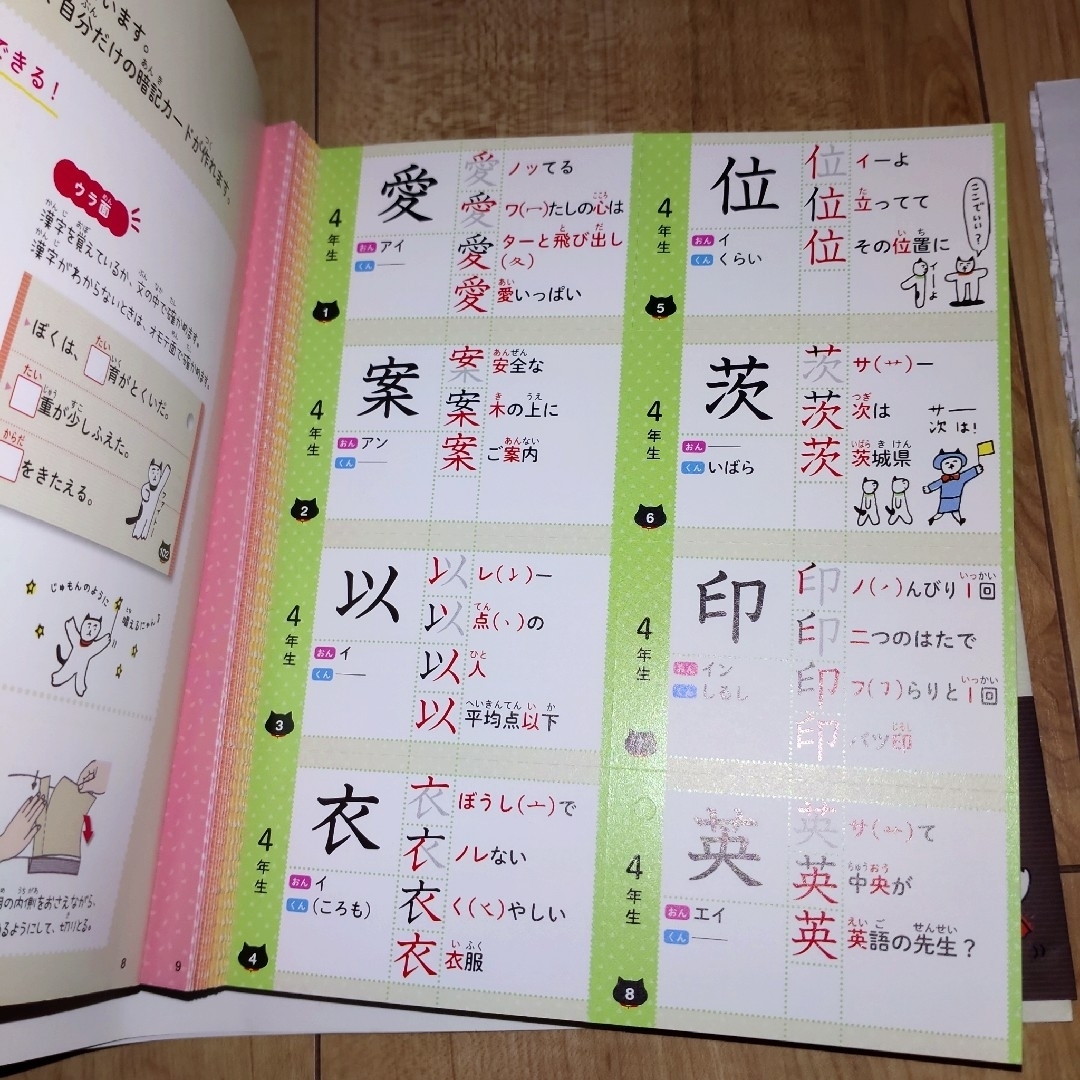 います。
自分だけの暗記カードが作れます。
できる！
ウラ面
漢字を覚えているか、文の中で確かめます。
漢字がわからないときは、オモテ面で確かめます。
ぼくは、□育がとくいだ。
たい
いく
□重が少しふえた。
たい
じゅう
すこ
□をきたえる。
からだ
102
じゅもんのように
唱えるにゃん♪
の内側をおさえながら、
るようにして、切りとる。
8
9
4年生
愛
おん アイ
くん ―
愛 ノッてる
愛 ワ(冖)たしの心は
愛 ターと飛び出し(夂)
愛 愛いっぱい
1
4年生
案
おん アン
くん ―
案 安全な
案 木の上に
案 ご案内
2
4年生
以
おん イ
くん ―
以 レ(𠄌)ー
以 点(丶)の
以 人
以 平均点以下
3
4年生
衣
おん イ
くん (ころも)
衣 ぼうし(亠)で
衣 ノレない
衣 く(㇏)やしい
衣 衣服
4
4年生
位
おん イ
くん くらい
位 イーよ
位 立ってて
位 その位置に
ここでいい？
イーよ
5
4年生
茨
おん ―
くん いばら
茨 サ(艹)ー
茨 次は
茨 茨城県
サー
次は！
6
4年生
印
おん イン
くん しるし
印 ノ(㇒)んびり1回
印 二つのはたで
印 フ(㇆)らりと1回
印 バツ印
4年生
英
おん エイ
くん ―
英 サ(艹)て
英 中央が
英 英語の先生？
8